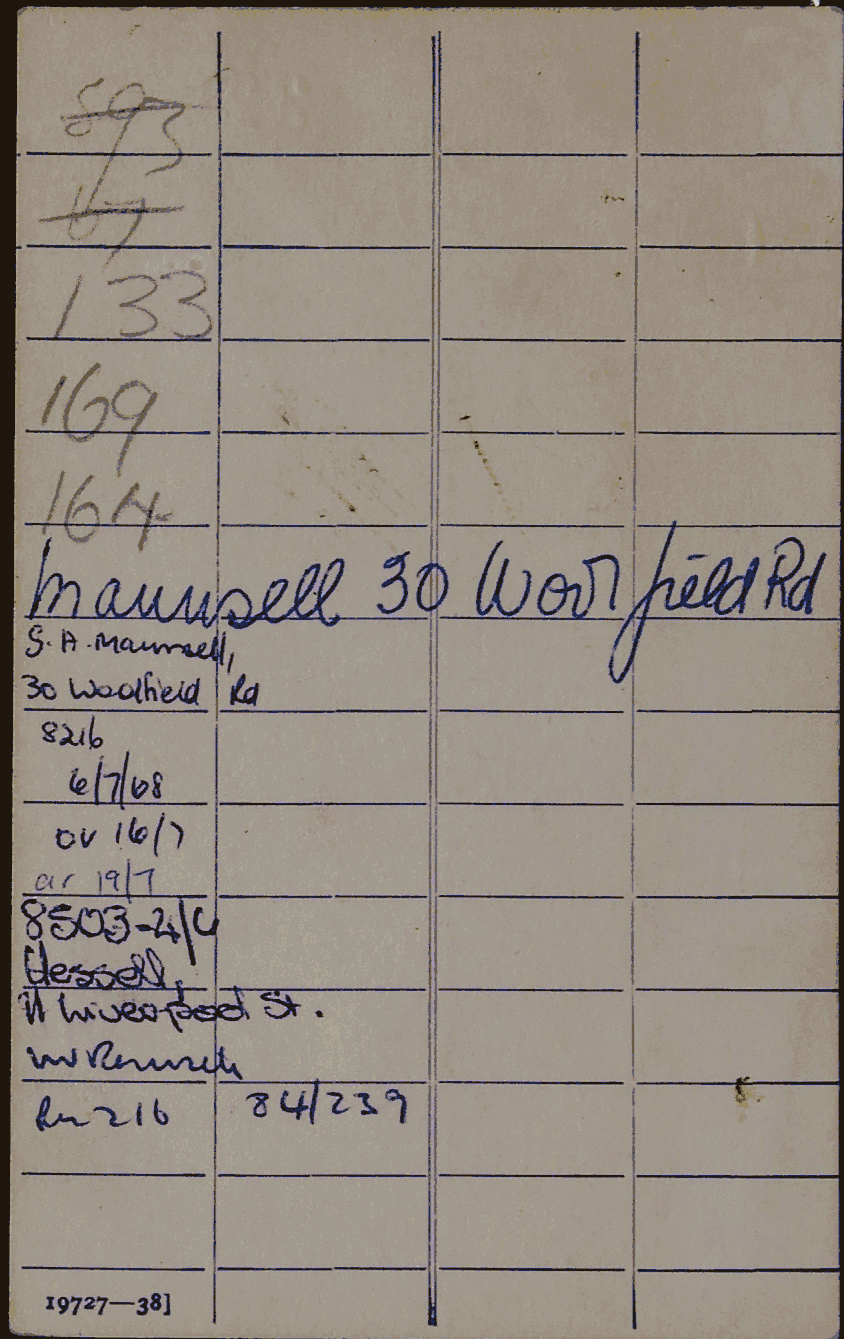 593
67
133
169
164
Maunsell 30 Woodfield Rd
G. A. Maunsell,
30 Woodfield Rd
8216
6/7/68
ov 16/7
ar 19/7
8503-4/6
Hessell,
11 Liverpool St.
216 84/239
19727—38]